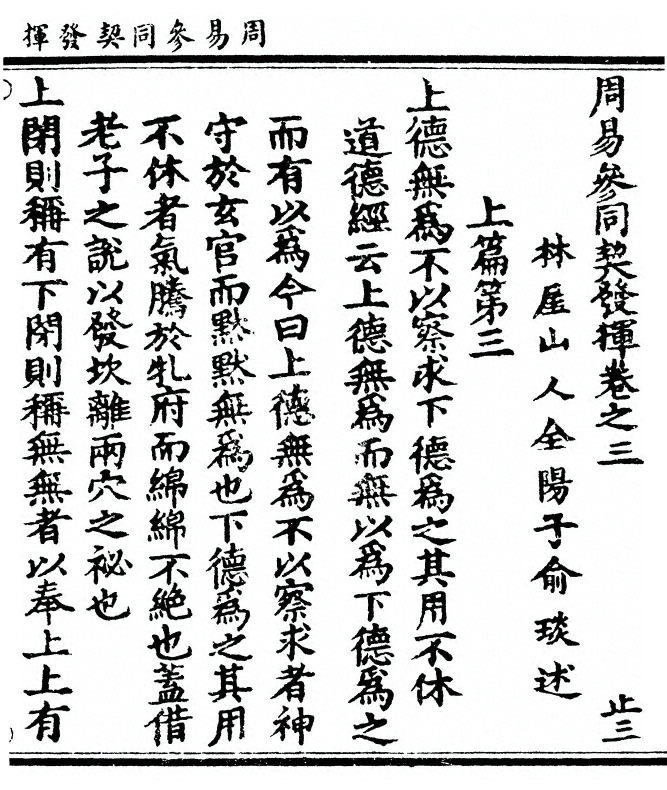 周易參同契發揮
周易參同契發揮卷之三
止三
林屋山人全陽子俞琰述
上篇第三
上德無爲不以察求下德爲之其用不休
道德經云上德無爲而無以爲下德爲之
而有以爲今曰上德無爲不以察求者神
守於玄宫而默默無爲也下德爲之其用
不休者氣騰於牝府而綿綿不絶也蓋借
老子之說以發坎離兩穴之祕也
上閉則稱有下閉則稱無無者以奉上上有